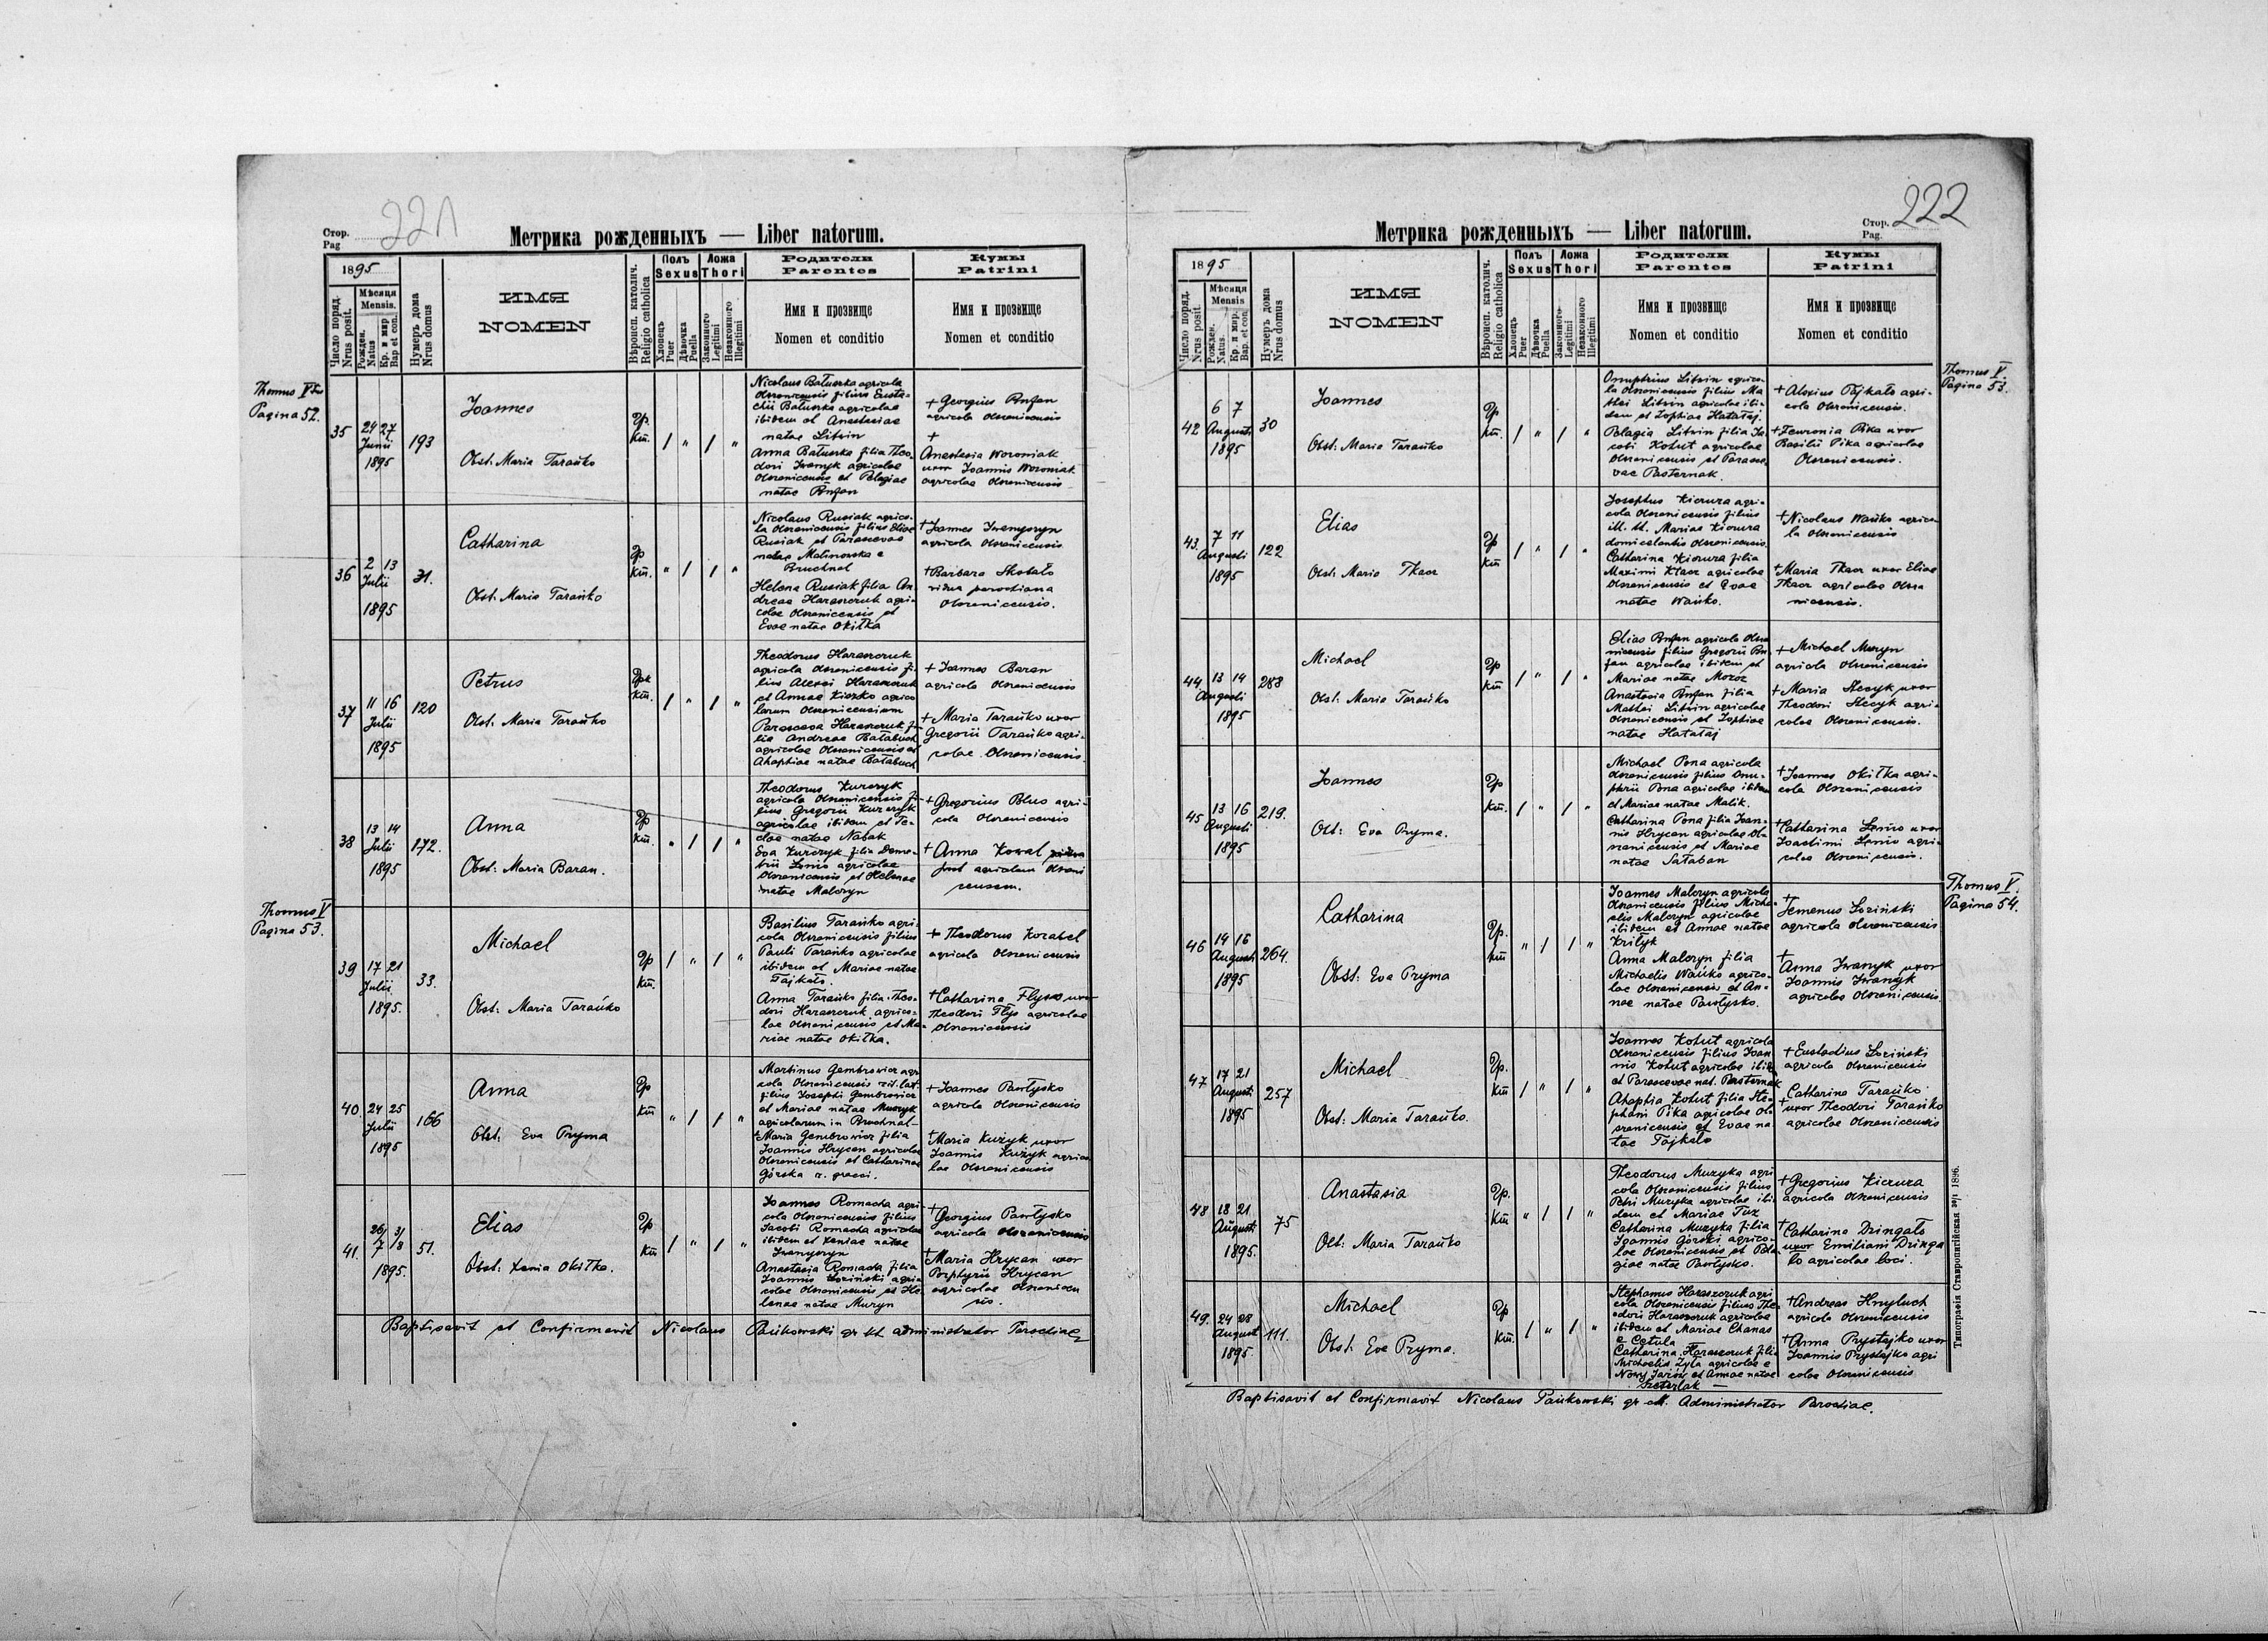 Стор.
Pag
221
Метрика рожденныхъ — Liber natorum.
1895
Число поряд.
Nrus posit.
Мѣсяця
Mensis.
Рожден.
Natus
Кр. и мѵр
Bap et con.
Нумеръ дома
Nrus domus
ИМЯ
NOMEN
Вѣроисп. католич.
Religio catholica
Полъ
Sexus
Хлопецъ
Puer
Дѣвочка
Puella
Ложа
Thori
Законного
Legitimi
Незаконного
Illegitimi
Родители
Parentes
Имя и прозвище
Nomen et conditio
Кумы
Patrini
Имя и прозвище
Nomen et conditio
Pagina 52.
35
24 27
Junii
1895
193
Joannes
Obst: Maria Tarańko
Gr.
Kat.
Nicolaus Batuszka agricola
Olszanicensis filius Eusta-
chii Batuszka agricolae
ibidem et Anastasiae
natae Litwin
Anna Batuszka filia Theo-
dori Iwanyk agricolae
Olszanicensis et Pelagiae
natae
+ Georgius
agricola Olszanicensis
+
Anastasia Woroniak
uxor Joannis Woroniak
agricolae Olszanicensis
36
2 13
Julii
1895
31.
Catharina
Obst: Maria Tarańko
Nicolaus Rusiak agrico-
la Olszanicensis filius Eliae
Rusiak et Parascevae
natae Malinowska e
Bruchnal
Helena Rusiak filia An-
dreae Haraszczuk agri-
colae Olszanicensis et
Evae natae Okiłka
+ Joannes
agricola Olszanicensis
+ Barbara
vidua parochiana
Olszanicensis.
37
11 16
Julii
1895
120
Petrus
Obst. Maria Tarańko
Theodorus Haraszczuk
agricola Olszanicensis fi-
lius Alexii Haraszczuk
et Annae agrico
larum Olszanicensium
Parasceva Haraszczuk fi-
lia Andreae Bałabuch
agricolae Olszanicensis et
Ahaphiae natae Bałabuch
+ Joannes Baran
agricola Olszanicensis
+ Maria Tarańko uxor
Gregorii Tarańko agri-
colae Olszanicensis
38
13 14
Julii
1895
172.
Anna
Obst: Maria Baran.
Theodorus Kurczyk
agricola Olszanicensis fi-
lius Gregorii Kurczyk
agricolae ibidem et Te-
clae natae Nabak
Eva Kurczyk filia Deme-
trii agricolae
Olszanicensis et Helenae
natae Malczyn
+ Gregorius agri-
cola Olszanicensis
+ Anna Kowal
post agricolam Olszani
censem.
Thomus V
Pagina 53.
39
17 21
Julii
1895.
33.
Michael
Obst: Maria Tarańko
Basilius Tarańko agri-
cola Olszanicensis filius
Pauli Tarańko agricolae
ibidem et Mariae natae
Tajkało.
Anna Tarańko filia Theo-
dori Haraszczuk agrico-
lae Olszanicensis et Ma-
riae natae Okiłka.
+ Theodorus Korabel
agricola Olszanicensis
+ Catharina uxor
Theodori Flys agricolae
Olszanicensis
40.
24 25
Julii
1895
166
Anna
Obst: Eva Pryma
Martinus Gembrowicz agri
cola Olszanicensis rit. lat.
filius Josephi Gembrowicz
et Mariae natae
agricolarum in Bruchnal-
Maria Gembrowicz filia
Joannis Hrycan agricolae
Olszanicensis et Catharinae
Górska r. graeci.
+ Joannes Pawłysko
agricola Olszanicensis
+ Maria Kużyk uxor
Joannis Kużyk agrico
lae Olszanicensis
41.
26/7 31/8
1895.
51.
Elias
Obst: Xenia Okiłka.
Joannes Romacha agri-
cola Olszanicensis filius
Jacobi Romacha agricolae
ibidem et Xeniae natae
Anastasia Romacha filia
Joannis Łoziński agri-
colae Olszanicensis et He-
lenae natae Muzyn
+ Georgius Pawłysko
agricola Olszanicensis
+ Maria Hrycan uxor
Porphyrii Hrycan
agricolae Olszanicen
sis.
Baptisavit et Confirmavit Nicolaus Pańkowski gr kt administrator Parochiae
Стор.
Pag.
222
Метрика рожденныхъ — Liber natorum.
1895
Число поряд.
Nrus posit.
Мѣсяця
Mensis
Рожден.
Natus.
Кр. и мѵр.
Bap. et con.
Нумеръ дома
Nrus domus
ИМЯ
NOMEN
Вѣроисп. католич.
Religio catholica
Полъ
Sexus
Хлопецъ
Puer
Дѣвочка
Puella
Ложа
Thori
Законного-
Legitimi
Незаконного
Illegitimi
Родители
Parentes
Имя и прозвище
Nomen et conditio
Кумы
Patrini
Имя и прозвище
Nomen et conditio
Thomus V.
Pagina 53.
42
6 7
Augusti
1895
30
Joannes
Obst: Maria Tarańko
Onuphrius Litwin agrico-
la Olszanicensis filius Ma
thei Litwin agricolae ibi-
dem et Zophiae Hatałaj
Pelagia Litwin filia Ja-
cobi Kohut agricolae
Olszanicensis et Parasce-
vae Pasternak.
+ Alexius Tajkało agri-
cola Olszanicensis.
+ Fewronia Pika uxor
Basilii Pika agricolae
Olszanicensis.
43.
7 11
Augusti
1895
122
Elias
Obst: Maria Tkacz
Josephus Kiczura agri-
cola Olszanicensis filius
ill. tt. Mariae Kiczura
domicelantis Olszanicensis.
Catharina Kiczura filia
Maximi Tkacz agricolae
Olszanicensis et Evae
natae Wańko.
+ Nicolaus Wańko agrico-
la Olszanicensis
+ Maria Tkacz uxor Eliae
Tkacz agricolae Olsza
nicensis.
44
13 14
Augusti
1895
288
Michael
Obst: Maria Tarańko
Elias agricola Olsza
nicensis filius Gregorii
agricolae ibidem et
Mariae natae Moroz
Anastasia filia
Mathei Litwin agricolae
Olszanicensis et Zophiae
natae Hatałaj
+ Michael Muzyn
agricola Olszanicensis
+ Maria Stecyk uxor
Theodori Stecyk agri-
colae Olszanicensis.
45
13 16
Augusti
1895
219.
Joannes
Obst: Eva Pryma.
Michael Pona agricola
Olszanicensis filius Onu-
phrii Pona agricolae ibidem
et Mariae natae Malik.
Catharina Pona filia Joan-
nis Hrycan agricolae Ol-
szanicensis et Mariae
natae Sałaban
+ Joannes Okiłka agri-
cola Olszanicensis
+ Catharina uxor
Joachimi agri-
colae Olszanicensis.
Thomus V.
Pagina 54.
46
14 16
Augusti
1895
264.
Catharina
Obst: Eva Pryma
Joannes Malczyn agricola
Olszanicensis filius Micha-
elis Malczyn agricolae
ibidem et Annae natae
Anna Malczyn filia
Michaelis Wańko agrico-
lae Olszanicensis et An-
nae natae Pawłysko.
+
Semenus Łoziński
agricola Olszanicensis
+
Anna Iwanyk uxor
Joannis Iwanyk
agricolae Olszanicensis.
47
17 21
Augusti
1895
257
Michael
Obst: Maria Tarańko.
Joannes Kohut agricola
Olszanicensis filius Joan
nis Kohut agricolae ibid.
et Parascevae nat. Pasternak
Ahaphia Kohut filia Ste-
phani Pika agricolae Ol
szanicensis et Evae na
tae Tajkało
+ Eustachius Łoziński
agricola Olszanicensis
Catharina Tarańko
+ uxor Theodori Tarańko
agricolae Olszanicensis
48
18 21
Augusti
1895.
75
Anastasia
Obst: Maria Tarańko
Theodorus Muzyka agri
cola Olszanicensis filius
Petri Muzyka agricolae ibi
dem et Mariae Tuz
Catharina Muzyka filia
Joannis Górski agrico-
lae Olszanicensis et Pela
giae natae Pawłysko.
+ Gregorius Kiczura
agricola Olszanicensis
+ Catharina Dzingało
uxor Emiliani Dzinga
ło agricolae loci.
49.
24 28
August
1895.
111.
Michael
Obst: Eva Pryma.
Stephanus Haraszczuk agri
cola Olszanicensis filius The
odori Haraszczuk agricolae
ibidem et Mariae Chanas
e Cetula
Catharina Haraszczuk filia
Michaelis Zyła agricolae e
Nowy Jazów et Annae natae
+ Andreas Hnyluch
agricola Olszanicensis
+ Anna Prystajko uxor
Joannis Prystajko agri
colae Olszanicensis
Baptisavit et Confirmavit Nicolaus Pańkowski gr ctt. Administrator Parochiae.
Типографія Ставропигійская зар 1886.